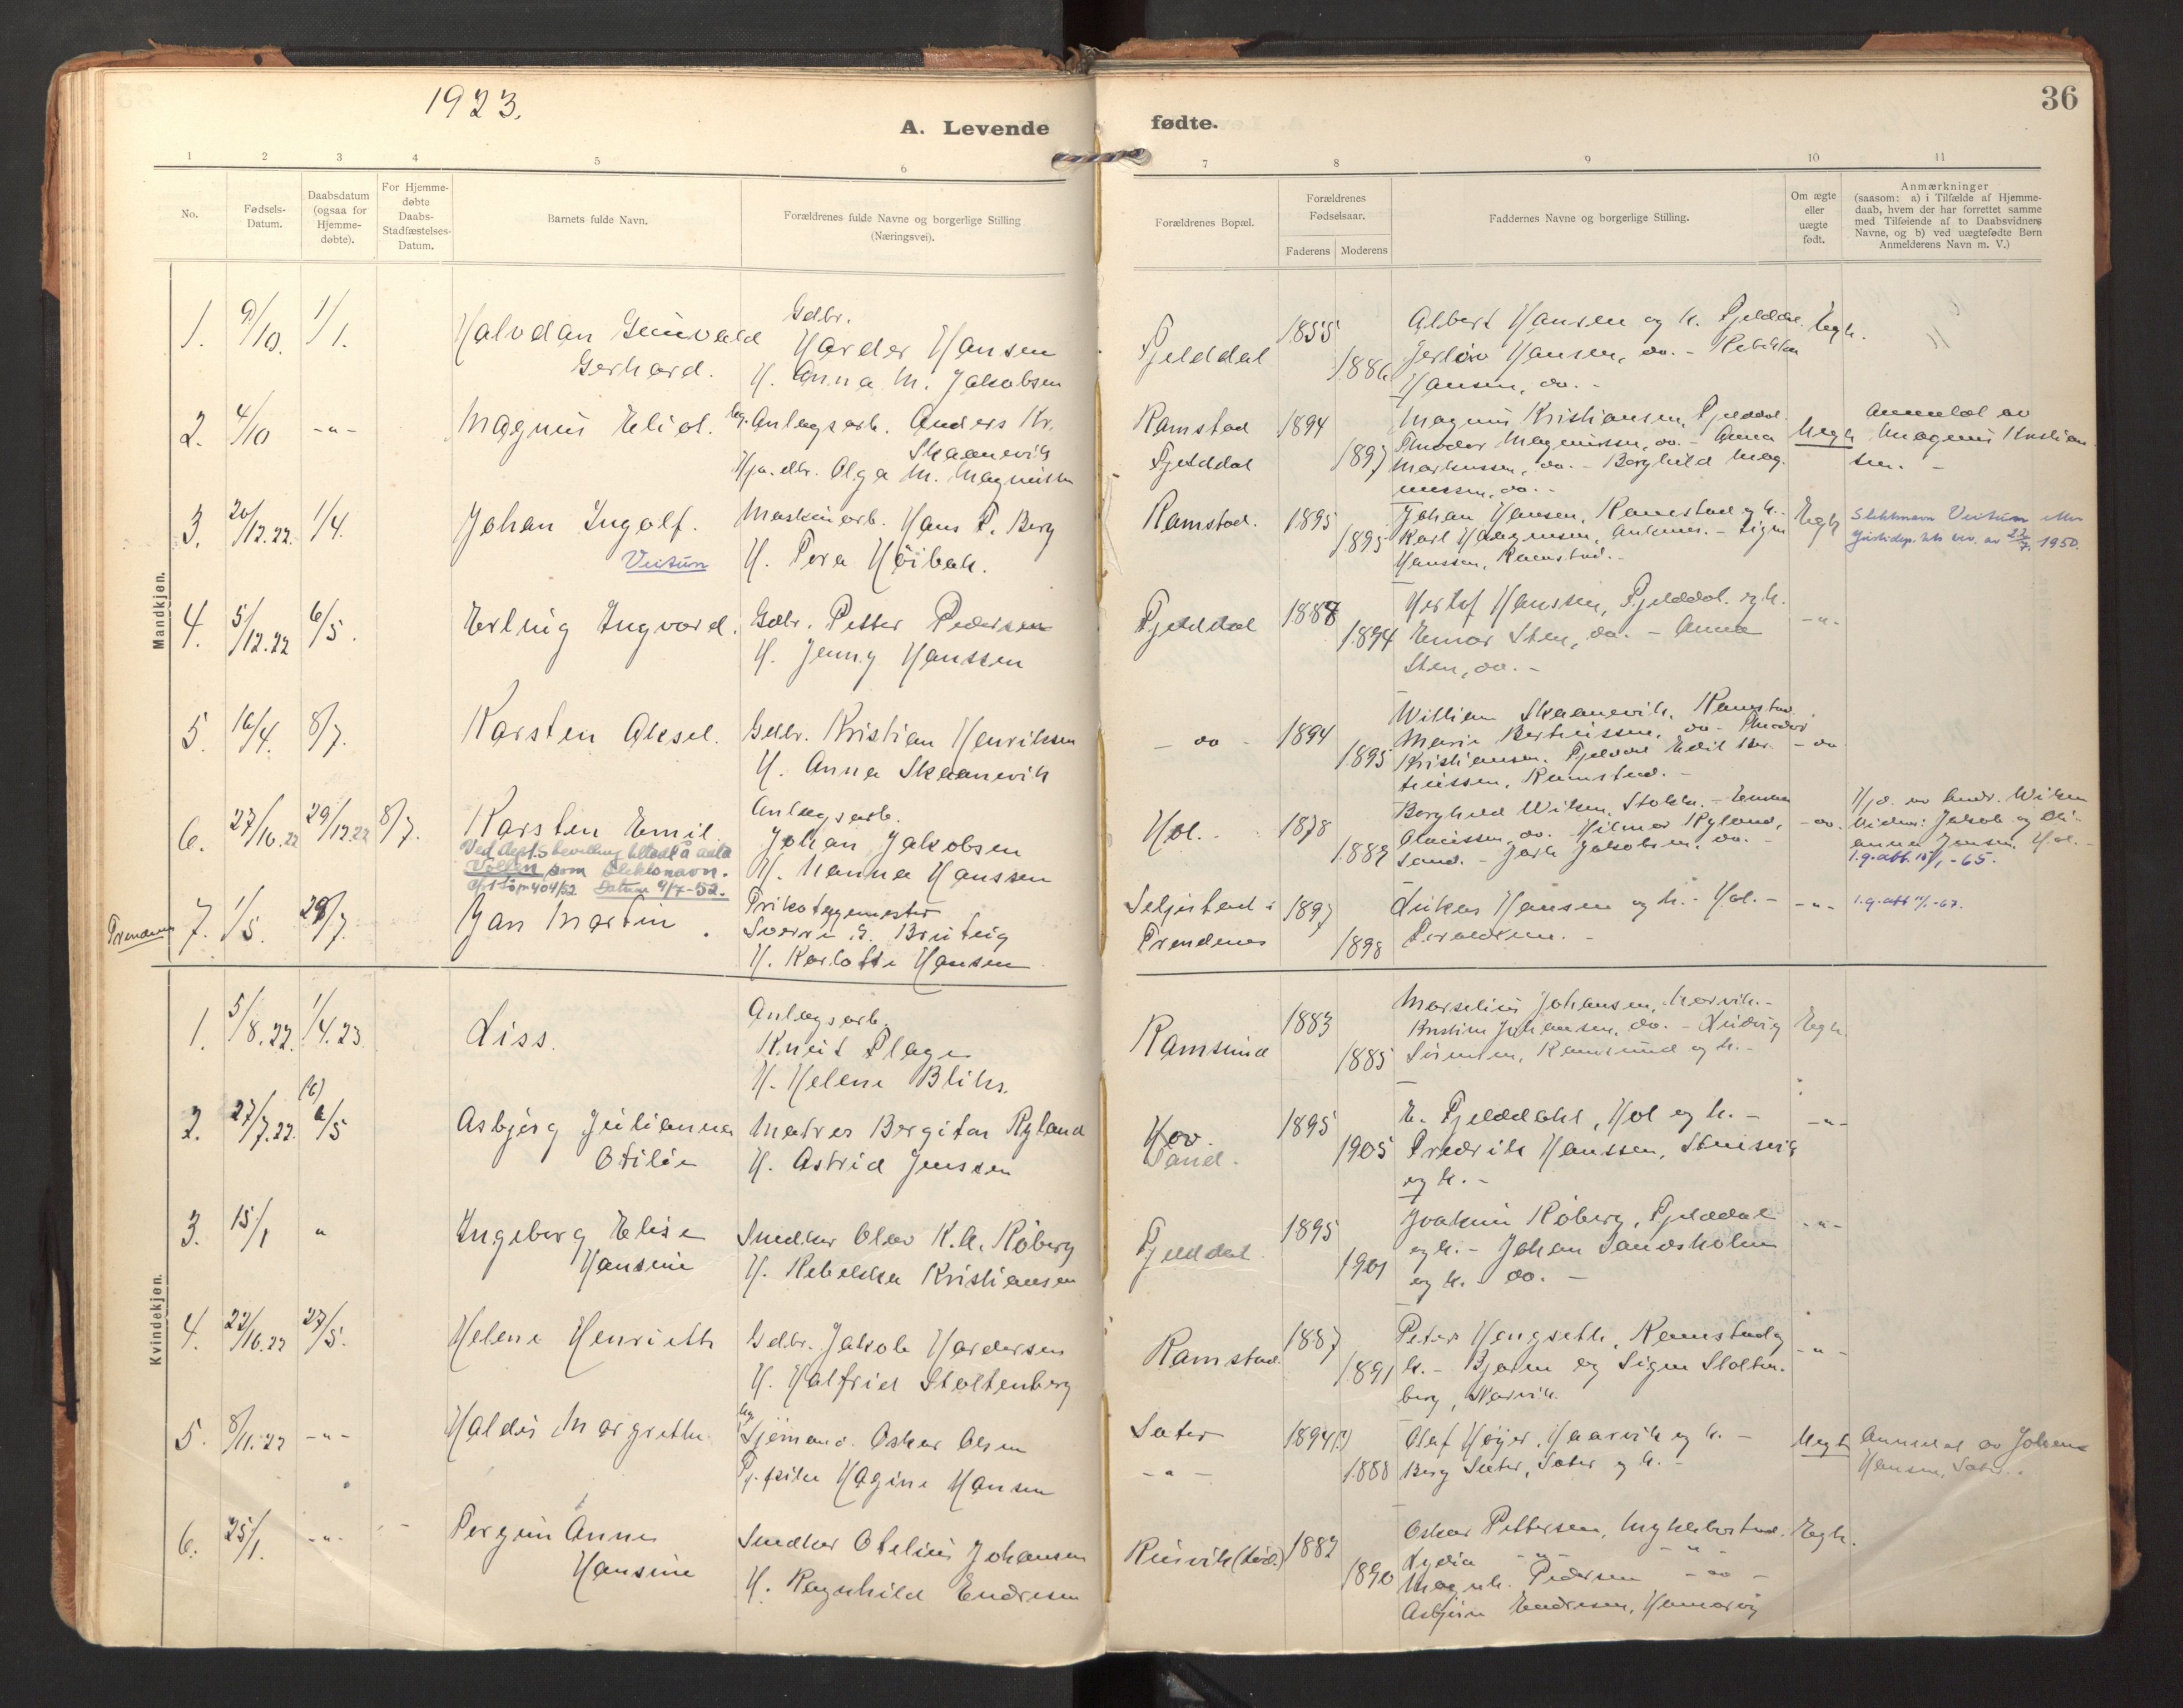 1923.
36
A. Levende
fødte.
1 2 3 4 5 6 7 8 9 10 11
No.
Fødsels-
Datum.
Daabsdatum
(ogsaa for
Hjemme-
døbte).
For Hjemme-
døbte
Daabs-
Stadfæstelses-
Datum.
Barnets fulde Navn.
Forældrenes fulde Navne og borgerlige Stilling
(Næringsvei).
Forældrenes Bopæl.
Forældrenes
Fødselsaar.
Faderens Moderens
Faddernes Navne og borgerlige Stilling.
Om ægte
eller
uægte
født.
Anmærkninger
(saasom: a) i Tilfælde af Hjemme-
daab, hvem der har forrettet samme
med Tilføiende af to Daabsvidners
Navne, og b) ved uægtefødte Børn
Anmelderens Navn m. V.)
Mandkjøn.
1. 9/10. 1/1.
Halvdan Gunvald
Gerhard.
Gdbr.
Harder Hansen
H. Anna M. Jakobsen
Fjelddal
1855
1886
Albert Hansen og h. Fjelddal.
Hansen, do. - Rebekka
Hansen, do. -
Egh.
2. 4/10 -"-
Magnus Eliot.
Ug. Anlægsarb. Anders Kr.
Skaanevik
Olga M. Magnussen
Ramstad
Fjelddal
1894
1897
Magnus Kristiansen, Fjelddal.
Thoder Magnussen, do. - Anna
Markussen, do. - Borghild Mag-
nussen, do. -
Uegh
Anmeldt av
Magnus Kristian-
sen. -
3. 20/12.22. 1/4.
Johan Ingolf.
Maskinarb. Hans P. Berg
H. Tora Höibak.
Ramstad.
1895
1895
Johan Hansen, Ramstad og h. -
Karl Hagensen, - Signe
Hanssen, Ramstad. -
Egh
Slektnavn
1950.
4. 5/12.22 6/5.
Erling Ingvard.
Gdbr. Petter Pedersen
H. Jenny Hanssen
Fjelddal
1888
1894
Hanssen, Fjelddal. og h.
Einar Sten, do. - Anna
Sten, do. -
-"-
5. 16/4. 8/7.
Karsten Aksel.
Gdbr. Kristian Henriksen
H. Anna Skaanevik
- do -
1894
1895
William Skaanevik, Ramstad.
Marie Bertheussen, do - Thodor
Kristiansen, Fjelddal Edit Ber-
theussen, Ramstad. -
- do
6. 27/10.22 29/12.22 8/7.
Karsten Emil.
Ved Dept.s bevilling tillatt å anta
Vollen som slektsnavn.
Datum 9/7-52.
Anlægsarb.
Johan Jakobsen
H. Hanna Hanssen
Hol.
1878
1882
Borghild Wiken, - Emma
Olaussen, do. - Hilmar Ryland,
Sand. - Jakobsen, do. -
- do.
Hjd. av Andr. Wiken
Jakob og
Jensen, Hol. -
Trondenes
7. 1/5. 29/7.
Jan Martin.
Trikotagemester
Sverre G. Brutvig
H. Karlotte Hansen
Seljestad i
Trondenes
1897
1898
Lukas Hansen og h. - Hol. -
-"-
Kvindekjøn.
1. 5/8.22. 1/4.23
Liss.
Anlægsarb.
Knut Flage
H. Helene Bliks.
Ramsund
1883
1885
Marselius Johansen, Narvik. -
Kristine Johansen, do. - Ludvig
Sörensen, Ramsund og h. -
Egh.
2. 27/7.22. 6/5
(6)
Asbjørg Julianna
Otilie
Matros Bergiton Ryland
H. Astrid Jenssen
Hov.
Sand.
1895
1905
E. Fjelddahl, Hol og h. -
Fredrik Hanssen,
og h. -
-"-
3. 15/1 "
Ingeborg Elise
Hansine
Snedker Olav K.A. Röberg
H. Rebekka Kristiansen
Fjelddal.
1895
1901
Joakim Röberg, Fjelddal
og h. - Johan Sandsholm
og h. do. -
-"-
4. 22/10.22 27/5.
Helene Henriette
Gdbr. Jakob Hardersen
H. Halfrid Stoltenberg
Ramstad.
1887
1891
Peter Hengseth, Ramstad og
h. - Bjarne og Signe Stolten-
berg, Narvik.
-"-
5. 8/11.22 -"-
Haldis Margrethe
Ug
Sjömand. Oskar Olsen
Hagine Hansen
Sæter
-"-
1894(?)
1888
Olaf Høyer, Haarvik og h. -
Berg Sæter, Sæter og h. -
Uegh
Anmeldt av Johan
Hansen, Sæter.
6. 25/1. -"-
Torgun Anne
Hansine
Snedker Otelius Johansen
H. Ragnhild Endresen
1882
1890
Oskar Pettersen,
Lydia -"- -"-
Pedersen - do -
Asbjörn Endresen,
Egh.